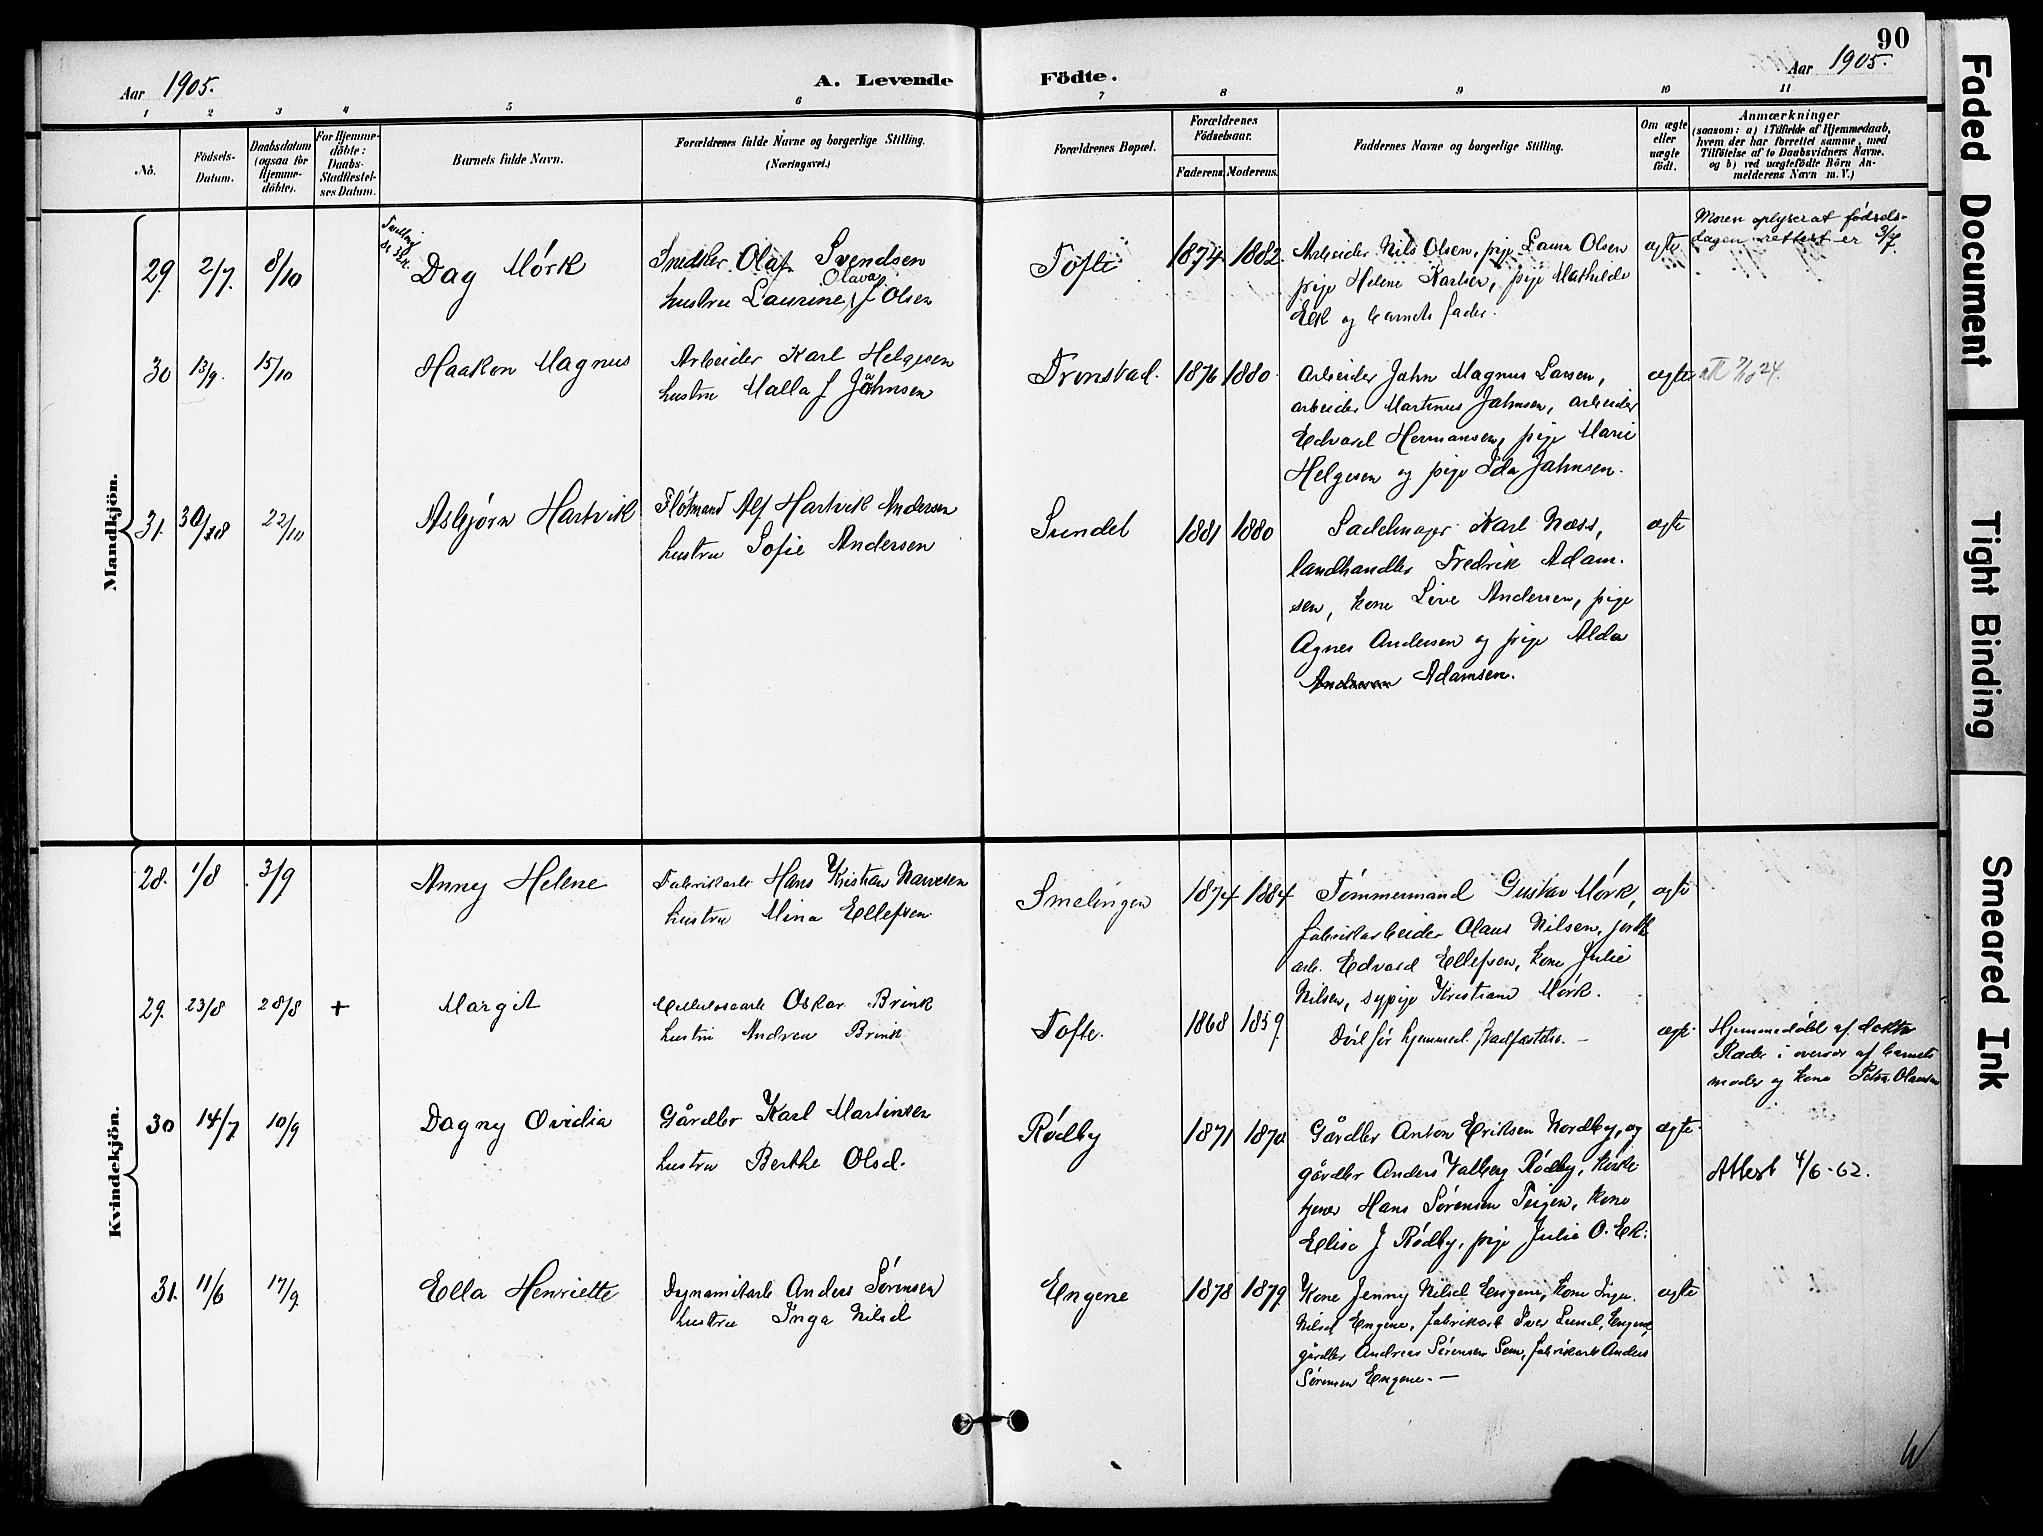 90
Aar 1905.
A. Levende Födte.
Aar 1905.
1 2 3 4 5 6 7 8 9 10 11
No.
Födsels-
Datum.
Daabsdatum
(ogsaa for
Hjemme-
döbte).
For Hjemme-
döbte:
Daabs-
Stadfæstel-
ses Datum.
Barnets fulde Navn.
Forældrenes fulde Navne og borgerlige Stilling.
(Næringsvei.)
Forældrenes Bopæl.
Forældrenes
Födselsaar.
Faderens
Moderens.
Faddernes Navne og borgerlige Stilling.
Om ægte
eller
uægte
födt.
Anmærkninger
(saasom: a) i Tilfælde af Hjemmedaab,
hvem der har forrettet samme, med
Tilföielse af to Daabsvidners Navne.
og b) ved uægtefödte Börn An-
melderens Navn m. V.)
Mandkjön.
29. 2/7. 8/10
Dag Mørk
Snedker Olaf Svendsen
Olava
hustru Laurine f Olsen
Tofte
1874 1882.
Arbeider Nils Olsen, pige Laura Olsen
pige Helene Karlsen, pige Mathilde
Ek og barnets fader.
ægte
Moren oplyser at fødsels-
dagen rettest er 3/7.
30 13/9. 15/10
Haakon Magnus
Arbeider Karl Helgesen
hustru Malla f Jahnsen
Tronstad.
1876 1880.
Arbeider John Magnus Larsen,
arbeider Martinus Jahnsen, arbeider
Edvard Hermansen, pige Marie
Helgesen og pige Ida Jahnsen.
ægte
31. 30/8 22/10
Asbjørn Hartvik
Fløtmand Alf Hartvik Andersen
hustru Sofie Andersen
Sundet
1881 1880
Sadelmager Karl Næss,
landhandler Fredrik Adam-
sen, kone Live Andersen, pige
Agnes Andersen og pige Alda
Andersen Adamsen.
ægte
Kvindekjön.
28. 1/8 3/9
Anny Helene
Fabrikarb Hans Kristian Narvesen
hustru Mina Ellefsen
Smelingen
1874 1884
Tømmermand Gustav Mørk,
fabrikarbeider Olaus Nilsen,
arb. Edvard Ellefsen, kone Julie
Nilsen, sypige Kristiane Mørk.
ægte
29. 23/8 28/8 +
Margit
Cellulosearb Oskar Brink
hustru Andrea Brink
Tofte.
1868 1859.
Død før hjemmed. stadfæstelse. —
ægte
Hjemmedøbt af doktor
Ræder i overvær af barnets
moder og kone Petra Olausen
30 14/7 10/9
Dagny Ovidia
Gårdbr Karl Martinsen
hustru Berthe Olsd.
Rødby
1871 1870
Gårdbr Anton Eriksen Nordby, og
gårdbr Anders Valberg Rødby, kirke-
tjener Hans Sørensen Teigen, kone
Elise J Rødby, pige Julie O. Ek.
ægte
Attest 4/6-62.
31. 11/6 17/9
Ella Henriette
Dynamitarb Anders Sørensen
hustru Inga Nilsd
Engene
1878 1879.
Kone Jenny Nilsd Engene, kone Inga
Nilsd Engene, fabrikarb Iver Lund, Engene
gårdbr Andreas Sørensen Sem, fabrikarb Anders
Sørensen Engene. —
ægte
Faded Document
Tight Binding
Smeared Ink